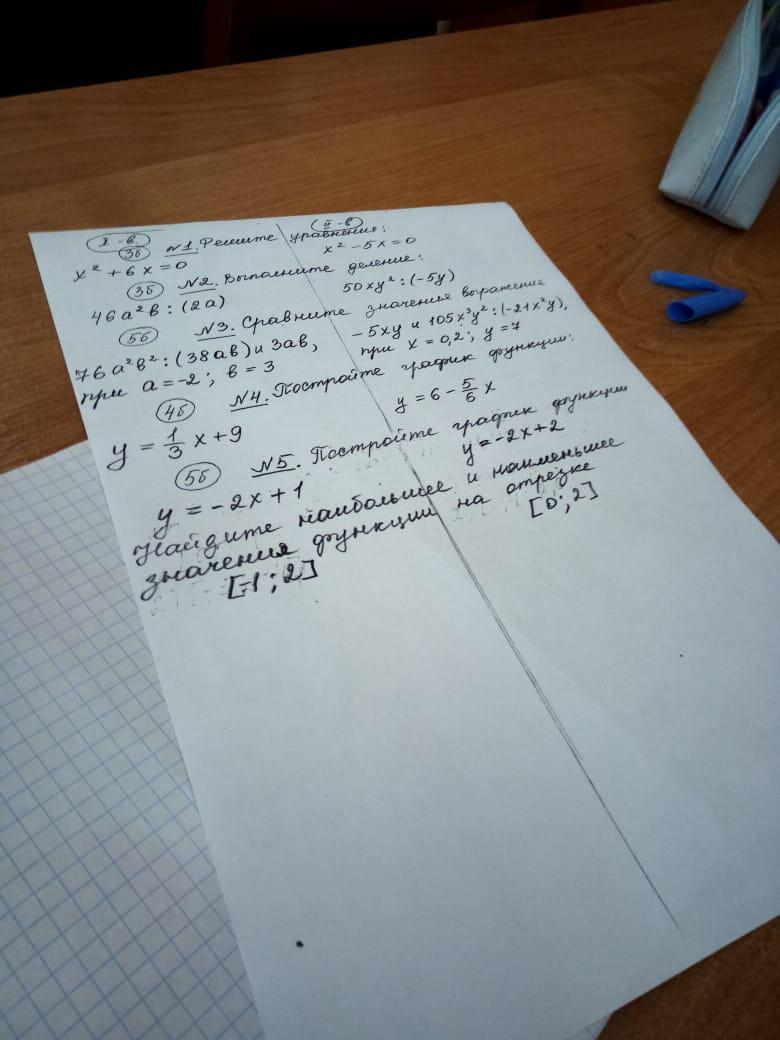 I-в. II-в
3б №1. Решите уравнение:
x² + 6x = 0 x² - 5x = 0
3б №2. Выполните деление:
46a²b : (2a) 50xy² : (-5y)
5б №3. Сравните значения выражения
76a²b² : (38ab) и 3ab, -5xy и 105x³y² : (-21x²y),
при a = -2; b = 3 при x = 0,2; y = 7
4б №4. Постройте график функции:
y = 1/3 x + 9 y = 6 - 5/6 x
5б №5. Постройте график функции
y = -2x + 1 y = -2x + 2
Найдите наибольшее и наименьшее
значения функции на отрезке
[-1; 2] [0; 2]